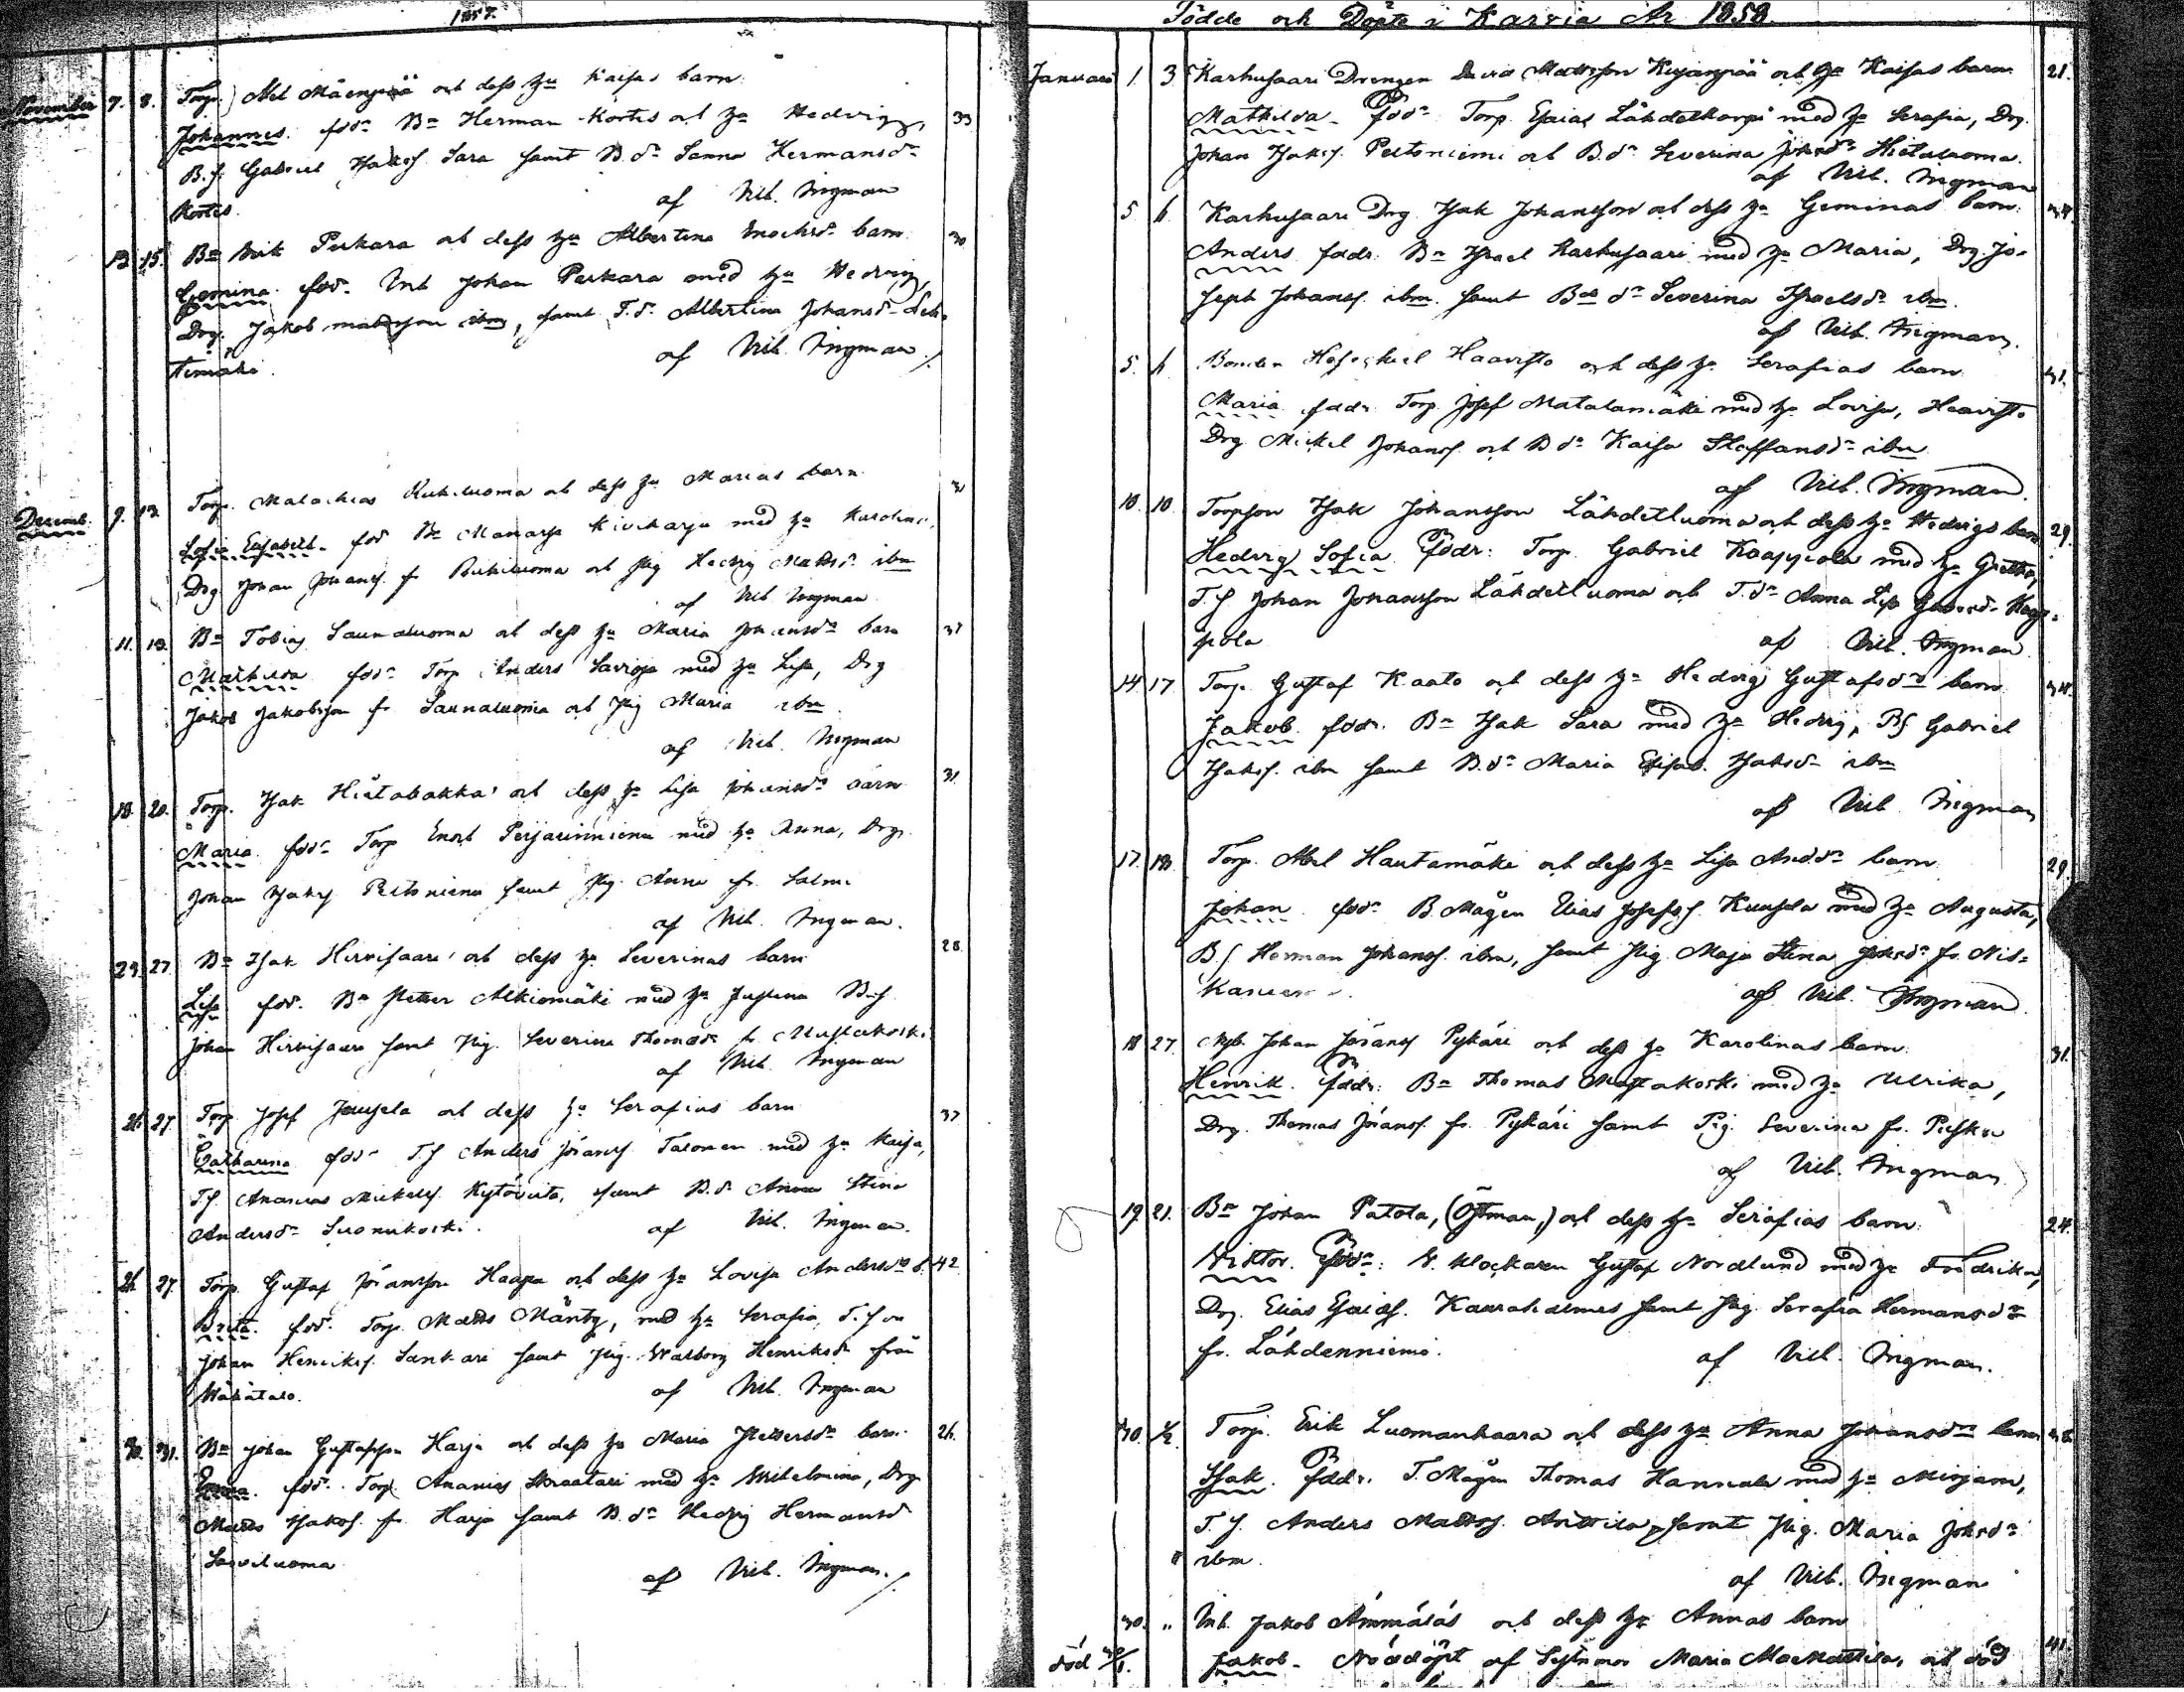 1857.
November 7. 8. Torp. Abel Mäenpää och dess hu Kaisas barn
Johannes. fdr Bn Herman Kortes och hu Hedvig, 33
B.s. Gabriel Isaksf. Sara samt B.dr Sanna Hermansdr
Kortes. af Vil. Ingman
13. 15. Bn Erik Perkara och dess hu Albertina Enochsdr barn 30
Gemina. fdr. Inh Johan Perkara med hu Hedvig,
Drg. Jakob Mattsson ibm, samt T.dr Albertina Johansdr Leh-
timäki. af Vil. Ingman
Decemb. 9. 13. Torp. Malachias Rukiluoma och dess hu Marias barn 31
Sofia Elisabeth. fdr Bn Manasse Kiviharju med hu Karolina,
Drg Johan Johansf. fr Rukiluoma och Pig Hedvig Mattsdr ibm
af Vil Ingman
11. 13. Bn Tobias Saunaluoma och dess hu Maria Johansdr barn 37
Mathilda fdr Torp Anders Savioja med hu Lisa, Drg
Jakob Jakobsson fr Saunaluoma och Pig Maria ibm
af Vil. Ingman
18. 20. Torp. Isak Hietabakka och dess hu Lisa Johansdr barn 31.
Maria. fdr Torp Enoch Perjärinniemi med hu Anna, Drg.
Johan Isaksf Peltoniemi samt Pig. Anna fr. Salmi
af Vil. Ingman.
23. 27 Bn Isak Hirvisaari och dess hu Severinas barn 28
Lisa fdr. Bn Petter Alkiomäki med hu Justina B.s.
Johan Hirvisaari samt Pig. Severina Thomasdr fr Mustakoski
af Vil. Ingman
26. 27. Torp Josef Jauhela och dess hu Serafias barn 37
Catharina fdr T.s Anders Jöransf Talonen med hu Kaisa,
T.s Ananias Mickelsf. Kytöviita, samt B.dr Anna Stina
Andersdr Suonukoski. af Vil. Ingman.
26. 27. Torp. Gustaf Jöransson Haapa och dess hu Lovisa Andersdrs b. 42
Brita. fdr. Torp. Matts Mänty, med hu Serafia, T.son
Johan Henriksf. Sankari samt Pig. Walborg Henriksdr från
Wähätalo. af Vil. Ingman
30. 31. Bn Johan Gustafsson Harja och dess hu Maria Pettersdr barn 26.
fdr. Torp. Ananias Skraatari med hu Wilhelmina, Drg
Matts Isaksf. fr Harja samt B.dr Hedvig Hermansd
Sarviluoma
af Vil. Ingman.
Födde och Döpte i Karvia År 1858
Januari 1. 3 Karhusaari Drengen David Mattsson Kujanpää och hu Kaisas barn 21.
Mathilda. fdr Torp. Esaias Lähdekorpi med hu Serafia, Drg.
Johan Isaksf. Peltoniemi och B.dr Severina Johsdr Hietaluoma.
af Vil. Ingman
5. 6. Karhusaari Drg Isak Johansson och dess hu Geminas barn. 34.
Anders. faddr. Bn Israel Karhusaari med hu Maria, Drg. Jo-
seph Johansf. ibm. samt Bdr dr Severina Israelsdr ibm.
af Vil. Ingman.
5. 6 Bonden Hesekiel Haavisto och dess hu Serafias barn 31.
Maria faddr Torp. Josef Matalamäki med hu Lovisa, Haavisto
Drg Mickel Johansf. och B.dr Kaisa Staffansdr ibm
af Vil. Ingman.
10. 10 Torpson Isak Johansson Lähdetluoma och dess hu Hedvigs barn 29.
Hedvig Sofia. Föddr: Torp. Gabriel Kaappola med hu Gretha,
T.S Johan Johansson Lähdetluoma och T.dr Anna Lisa Gabrsdr Kaap-
pola af Vil. Ingman
14 17 Torp. Gustaf Kaato och dess hu Hedvig Gustafsdrs barn 34.
Jakob. fddr. Bn Isak Sara med hu Hedvig, Bs Gabriel
Isaksf. ibm samt B.dr Maria Elisab. Isaksdr ibm
af Vil Ingman
17. 18 Torp. Abel Hautamäki och dess hu Lisa Andsdr barn 29.
Johan. fdr. B. Mågen Elias Josefsf. Kuusela med hu Augusta,
B.s Herman Johansf. ibm, samt Pig. Maja Stina Johsdr fr. Nis-
kanen. af Vil. Ingman
18 27. Nyb. Johan Jöransf Pykäri och dess hu Karolinas barn. 31.
Henrik. faddr: Bn Thomas Mustakoski med hu Ulrika,
Drg. Thomas Jöransf. fr. Pykäri samt Pig. Severina fr. Puska
af Vil. Ingman
19. 21. Bn Johan Patola, (Östman,) och dess hu Serafias barn. 24.
Viktor. fdr: V. klockaren Gustaf Nordlund med hu Fredrika,
Drg. Elias Esaiasf. Kauraharmes samt Pig. Serafia Hermansdr
fr. Lähdenniemi. af Vil. Ingman.
30. ½ Torp. Erik Luomanhaara och dess hu Anna Johansdrs barn 38.
Isak. faddr. T. Mågen Thomas Hannula med hu Mirjam,
T. S. Anders Mattsf. Anttila, samt Pig. Maria Johsdr
ibm.
af Vil. Ingman
30. " Inh. Jakob Ämmälää och dess hu Annas barn
död Jakob. Nöddöpt af Sytmor Maria Markattila, och död 41.